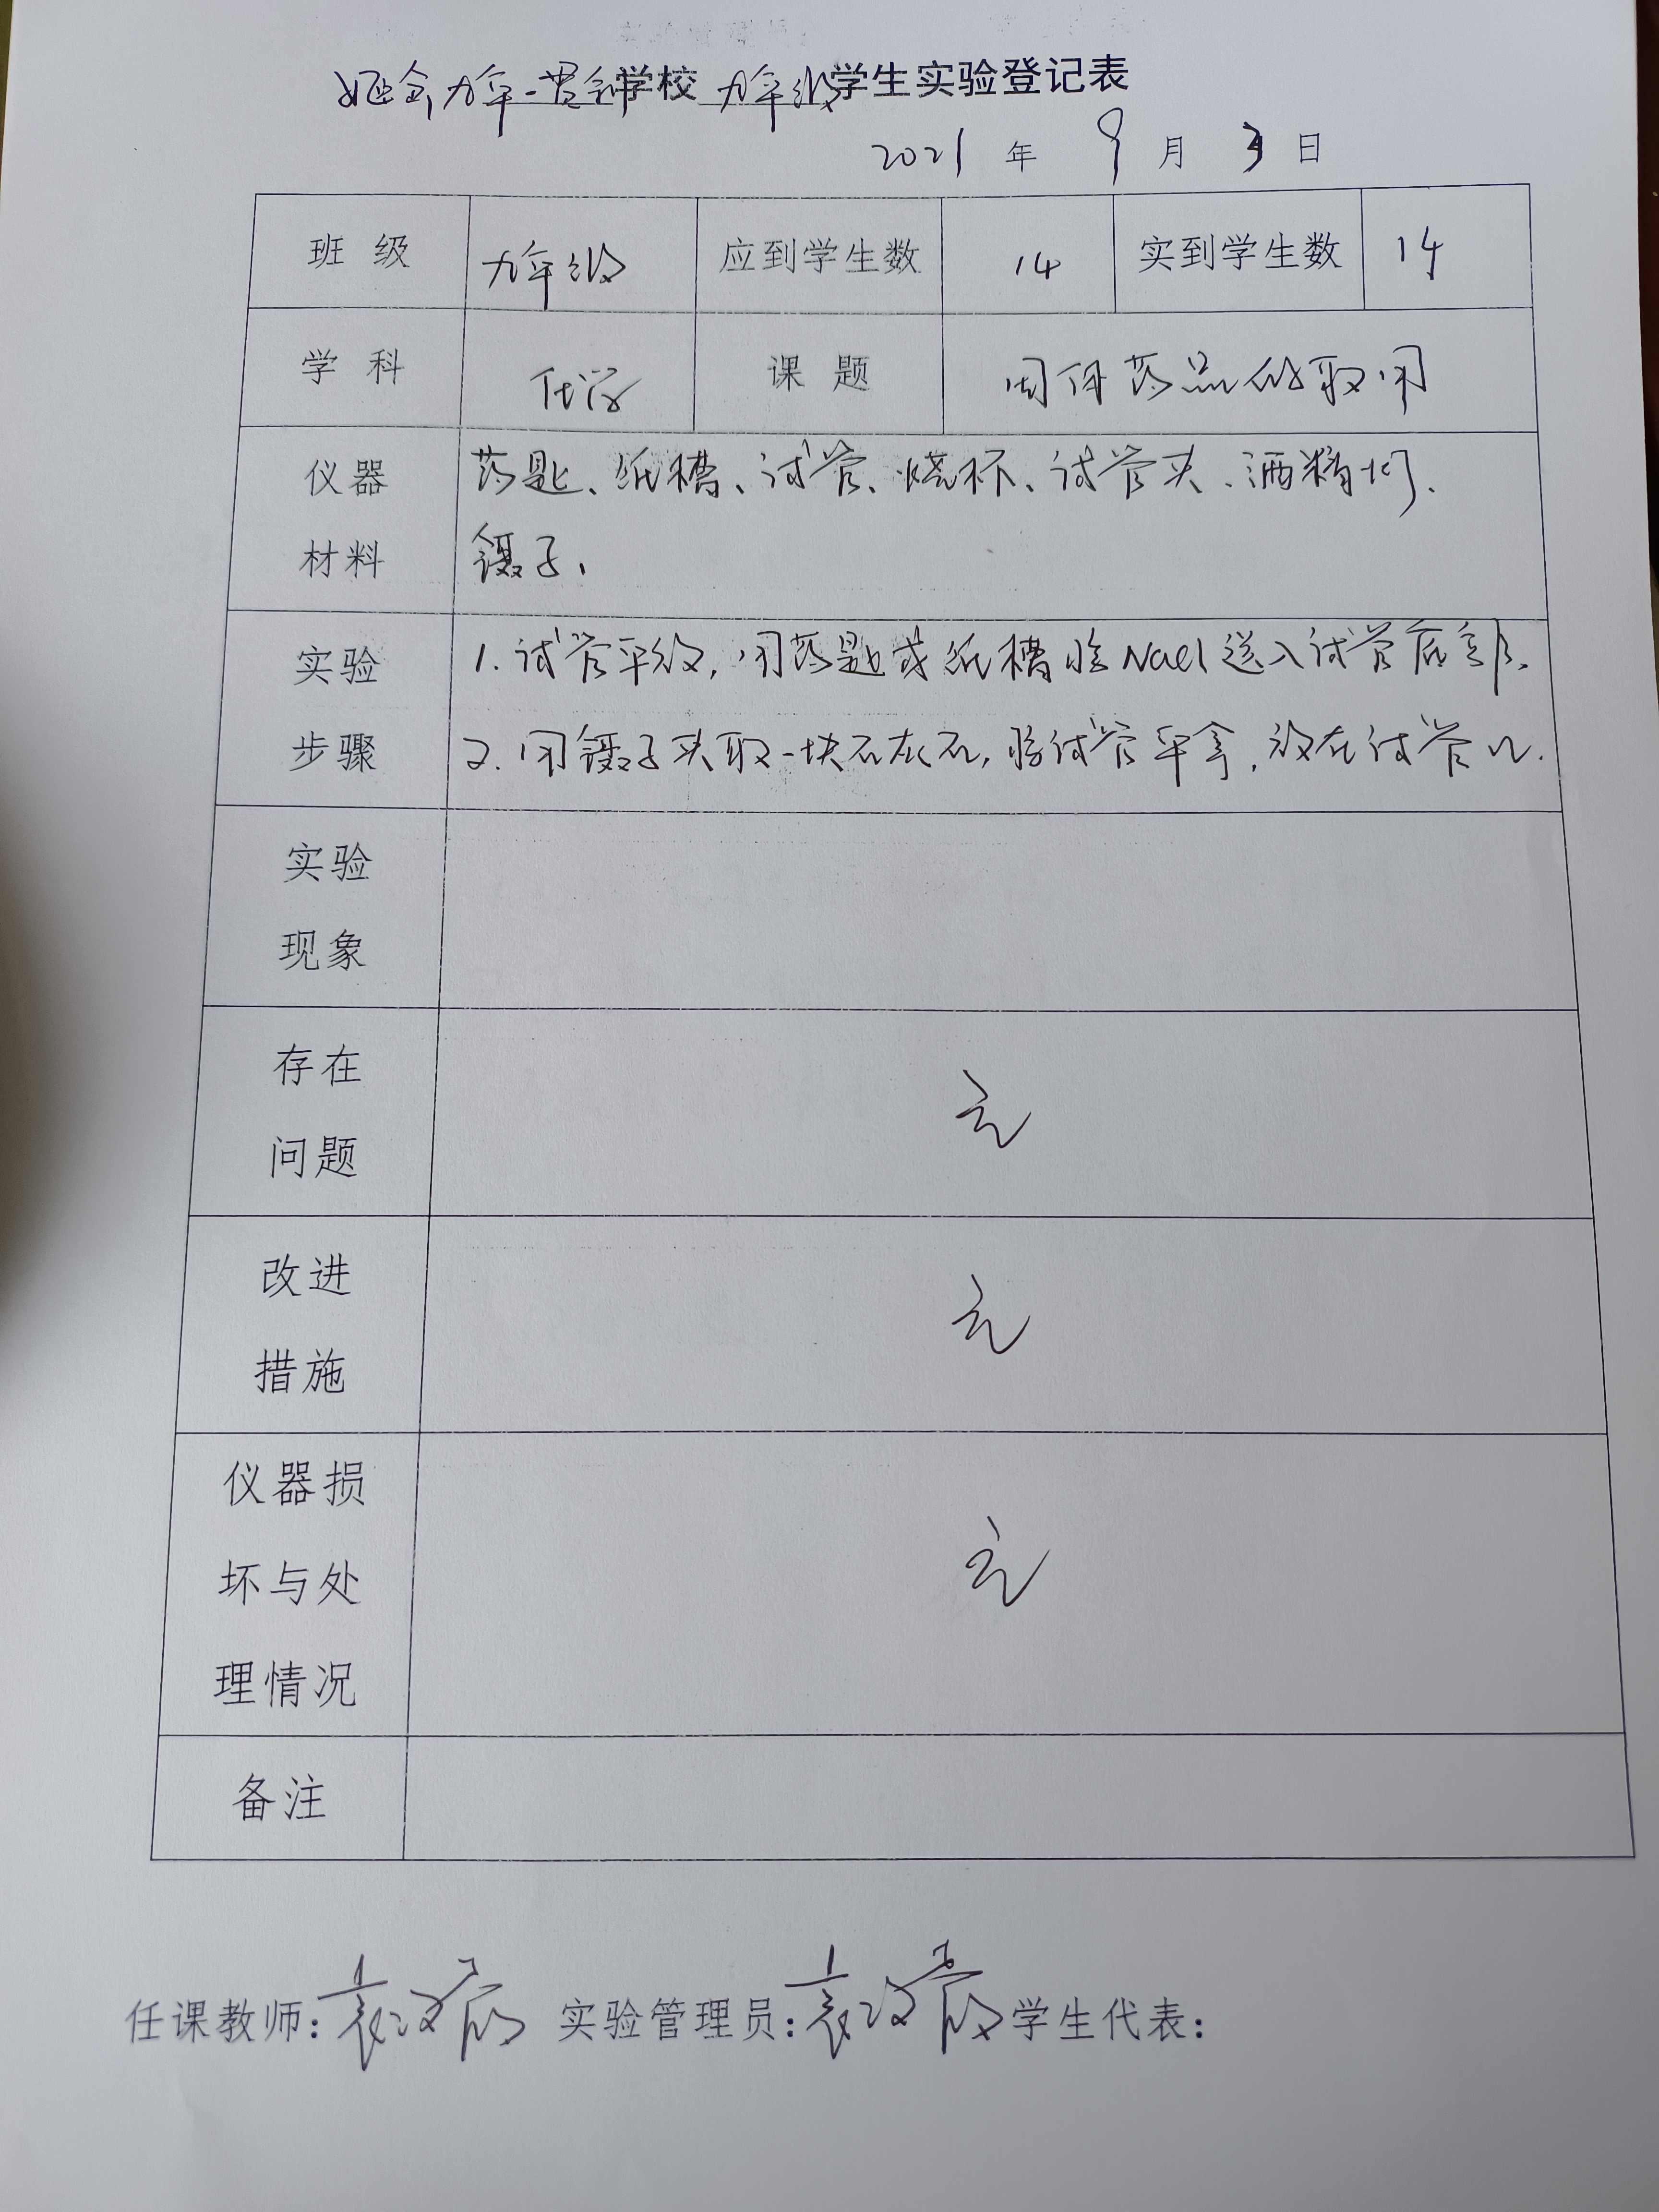 九年一贯制学校 九年级学生实验登记表
2021 年 9 月 3 日
班 级 九年级 应到学生数 14 实到学生数 14
学 科 化学 课 题 固体药品的取用
仪器 药匙、纸槽、试管、烧杯、试管夹、酒精灯、
材料 镊子、
实验 1. 试管平放,用药匙或纸槽将Nacl送入试管底部.
步骤 2. 用镊子夹取一块石灰石,将试管平拿,放在试管口.
实验
现象
存在
问题 无
改进
措施 无
仪器损
坏与处 无
理情况
备注
任课教师: 实验管理员: 学生代表: